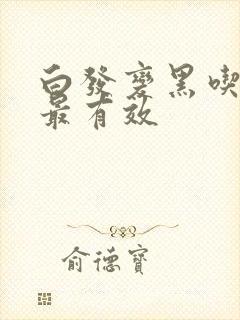 白發變黑喫
最有效
俞德寶